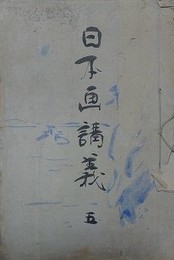 日本画講義 五